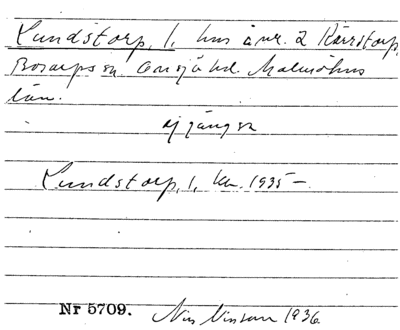 Lundstorp, 1, hus å nr. 2 Kärrstorp,
Bosarps sn. Onsjö hd. Malmöhus
län.
ej jäng sn
Lundstorp, 1, ku. 1935 –
Nr 5709. Nils Nilsson 1936